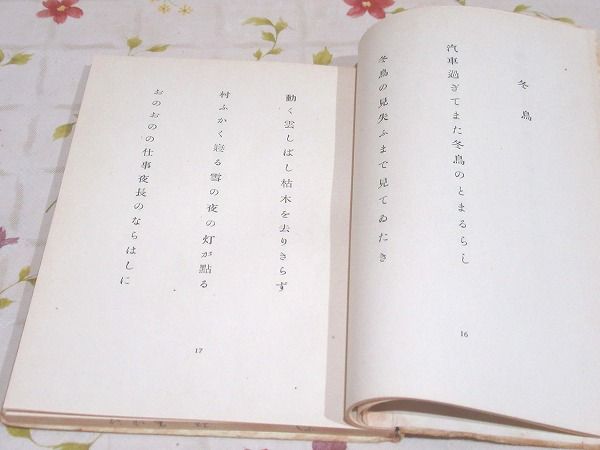 冬鳥
汽車過ぎてまた冬鳥のとまるらし
冬鳥の見失ふまで見てゐたき
16
動く雲しばし枯木を去りきらず
村ふかく寝る雪の夜の灯が點る
おのおのの仕事夜長のならはしに
17